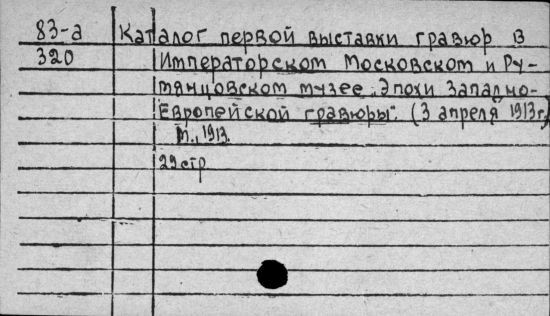 83-а Каталог первой выставки гравюр в
320 Императорском Московском и Ру-
мянцовском музее „Эпохи Западно-
Европейской гравюры". (3 апреля 1913г.)
М., 1913.
29 стр